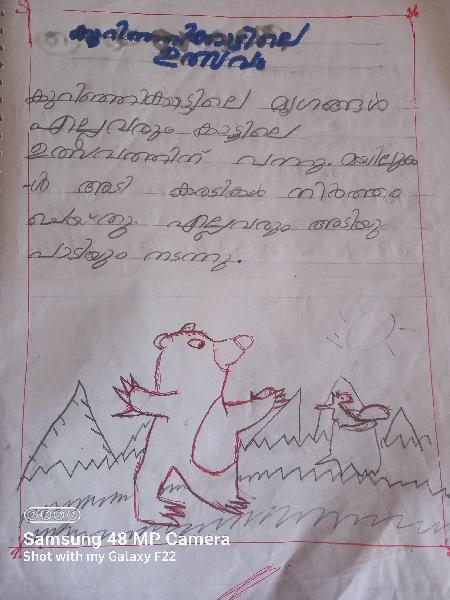 കുറിഞ്ഞിക്കാട്ടിലെ
ഉത്സവം
കുറിഞ്ഞിക്കാട്ടിലെ മൃഗങ്ങൾ
എല്ലാവരും കാട്ടിലെ
ഉത്സവത്തിന് വന്നു. മയിലുക
-ൾ ആടി കരടികൾ നിർത്തം
ചെയ്തു. എല്ലാവരും ആടിയും
പാടിയും നടന്നു.
Samsung 48 MP Camera
Shot with my Galaxy F22